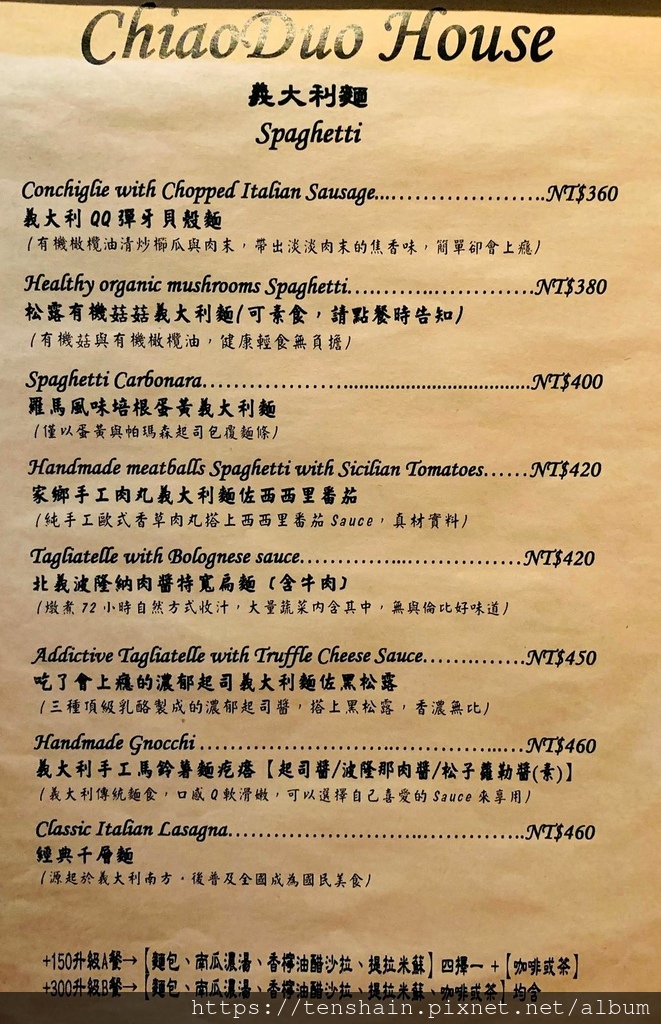 ChiaoDuo House
義大利麵
Spaghetti
Conchiglie with Chopped Italian Sausage...………………….NT$360
義大利QQ彈牙貝殼麵
(有機橄欖油清炒櫛瓜與肉末，帶出淡淡肉末的焦香味，簡單卻會上癮)
Healthy organic mushrooms Spaghetti….…….…………….NT$380
松露有機菇菇義大利麵(可素食，請點餐時告知)
(有機菇與有機橄欖油，健康輕食無負擔)
Spaghetti Carbonara……………….....................................NT$400
羅馬風味培根蛋黃義大利麵
(僅以蛋黃與帕瑪森起司包覆麵條)
Handmade meatballs Spaghetti with Sicilian Tomatoes……NT$420
家鄉手工肉丸義大利麵佐西西里番茄
(純手工歐式香草肉丸搭上西西里番茄Sauce，真材實料)
Tagliatelle with Bolognese sauce…………...…………….NT$420
北義波隆納肉醬特寬扁麵 (含牛肉)
(燉煮72小時自然方式收汁，大量蔬菜內含其中，無與倫比好味道)
Addictive Tagliatelle with Truffle Cheese Sauce…….…….NT$450
吃了會上癮的濃郁起司義大利麵佐黑松露
(三種頂級乳酪製成的濃郁起司醬，搭上黑松露，香濃無比)
Handmade Gnocchi …………………………………...….NT$460
義大利手工馬鈴薯麵疙瘩【起司醬/波隆那肉醬/松子蘿勒醬(素)】
(義大利傳統麵食，口感Q軟滑嫩，可以選擇自己喜愛的Sauce來享用)
Classic Italian Lasagna……………………...…………….NT$460
經典千層麵
(源起於義大利南方，後普及全國成為國民美食)
+150升級A餐→【麵包、南瓜濃湯、香檸油醋沙拉、提拉米蘇】四擇一 +【咖啡或茶】
+300升級B餐→【麵包、南瓜濃湯、香檸油醋沙拉、提拉米蘇、咖啡或茶】均含
https://tenshain.pixnet.net/album